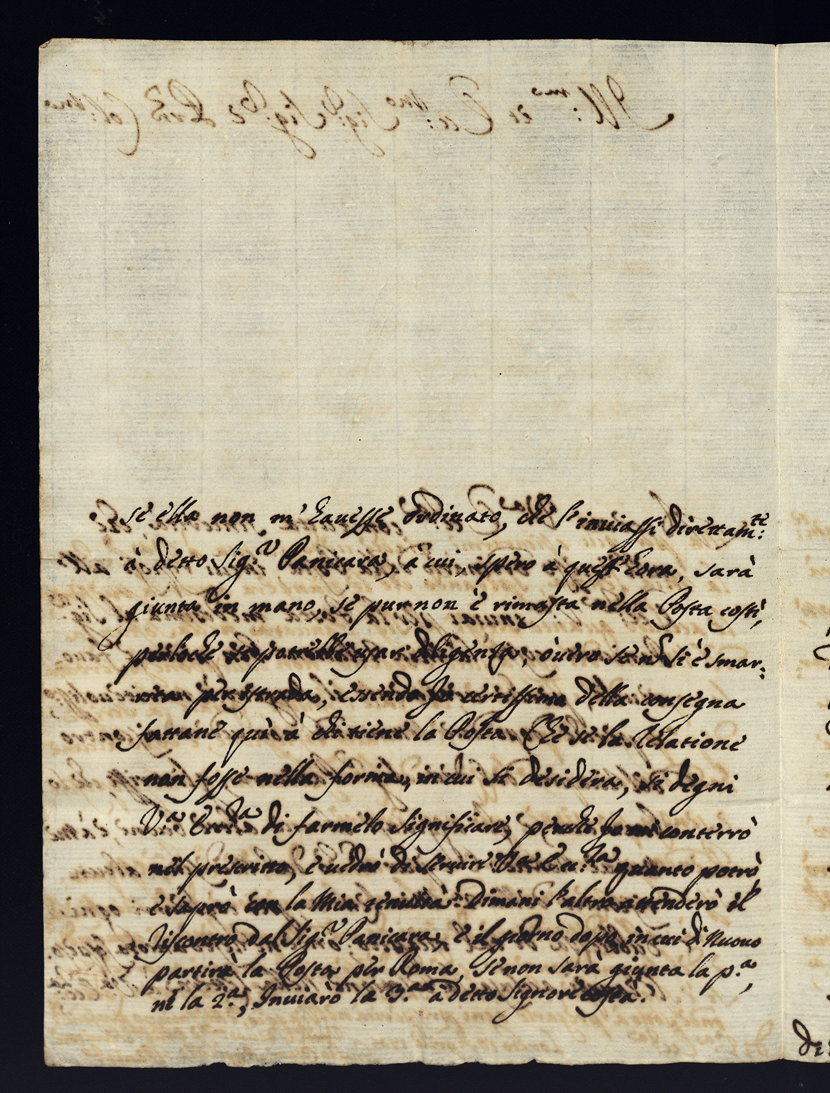 Ill:mo et Ecc:mo Sig:re Sig:re e Pron Col:mo
se ella non m'hauesse ordinato, che l'inuiassi direttam:te
à detto Sig:r Panicara, à cui spero à quest'hora, sarà
giunta in mano, se pur non è rimasta nella Posta costì,
perloche si potrebbe usar diligenza, ò uero se n si è smar:
rita per istrada, essendo Io certissimo della consegna
fattane quì à chi tiene la Posta. Che se la Relatione
non fosse nella forma, in cui si desidera, si degni
V.a Ecc.za di farmelo significare, perche Io mi conterrò
nel prescritto, e uedrò di seruire V.a Ecc.za quanto potrò
e saprò con la mia tenuità. Dimani l'altro attenderò il
Riscontro dal Sig:r Panicara e il giorno dopo, in cui di Nuouo
partirà la Posta per Roma, se non sarà giunta la p.a,
nè la 2.a, Inuiarò la 3.a à detto Signore costà.